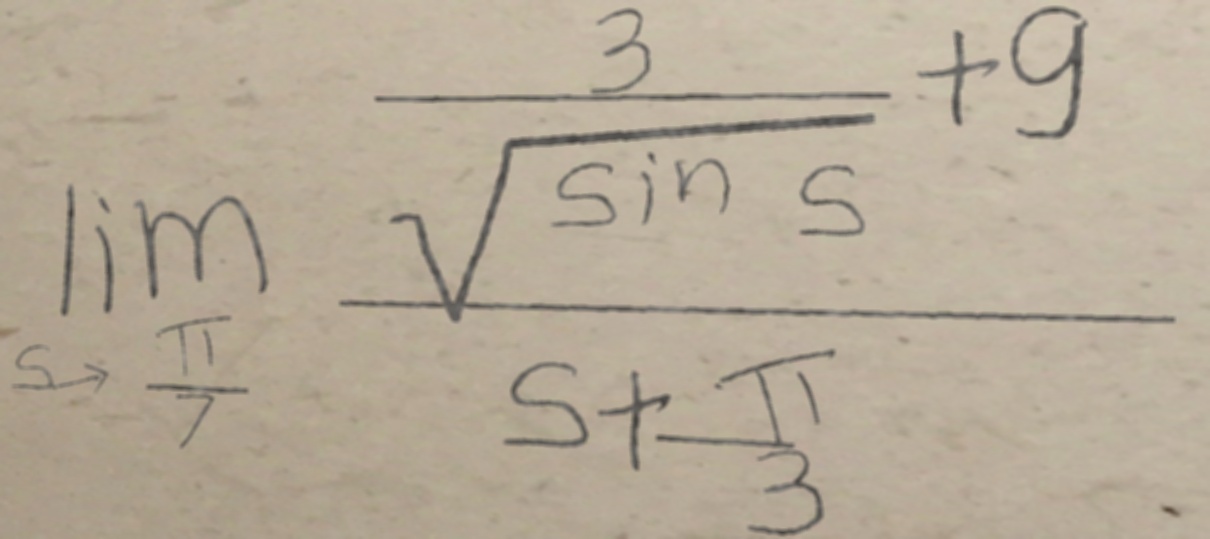 \lim_{s \to \frac{\pi}{7}} \frac{\frac{3}{\sqrt{\sin s}} + 9}{s + \frac{\pi}{3}}